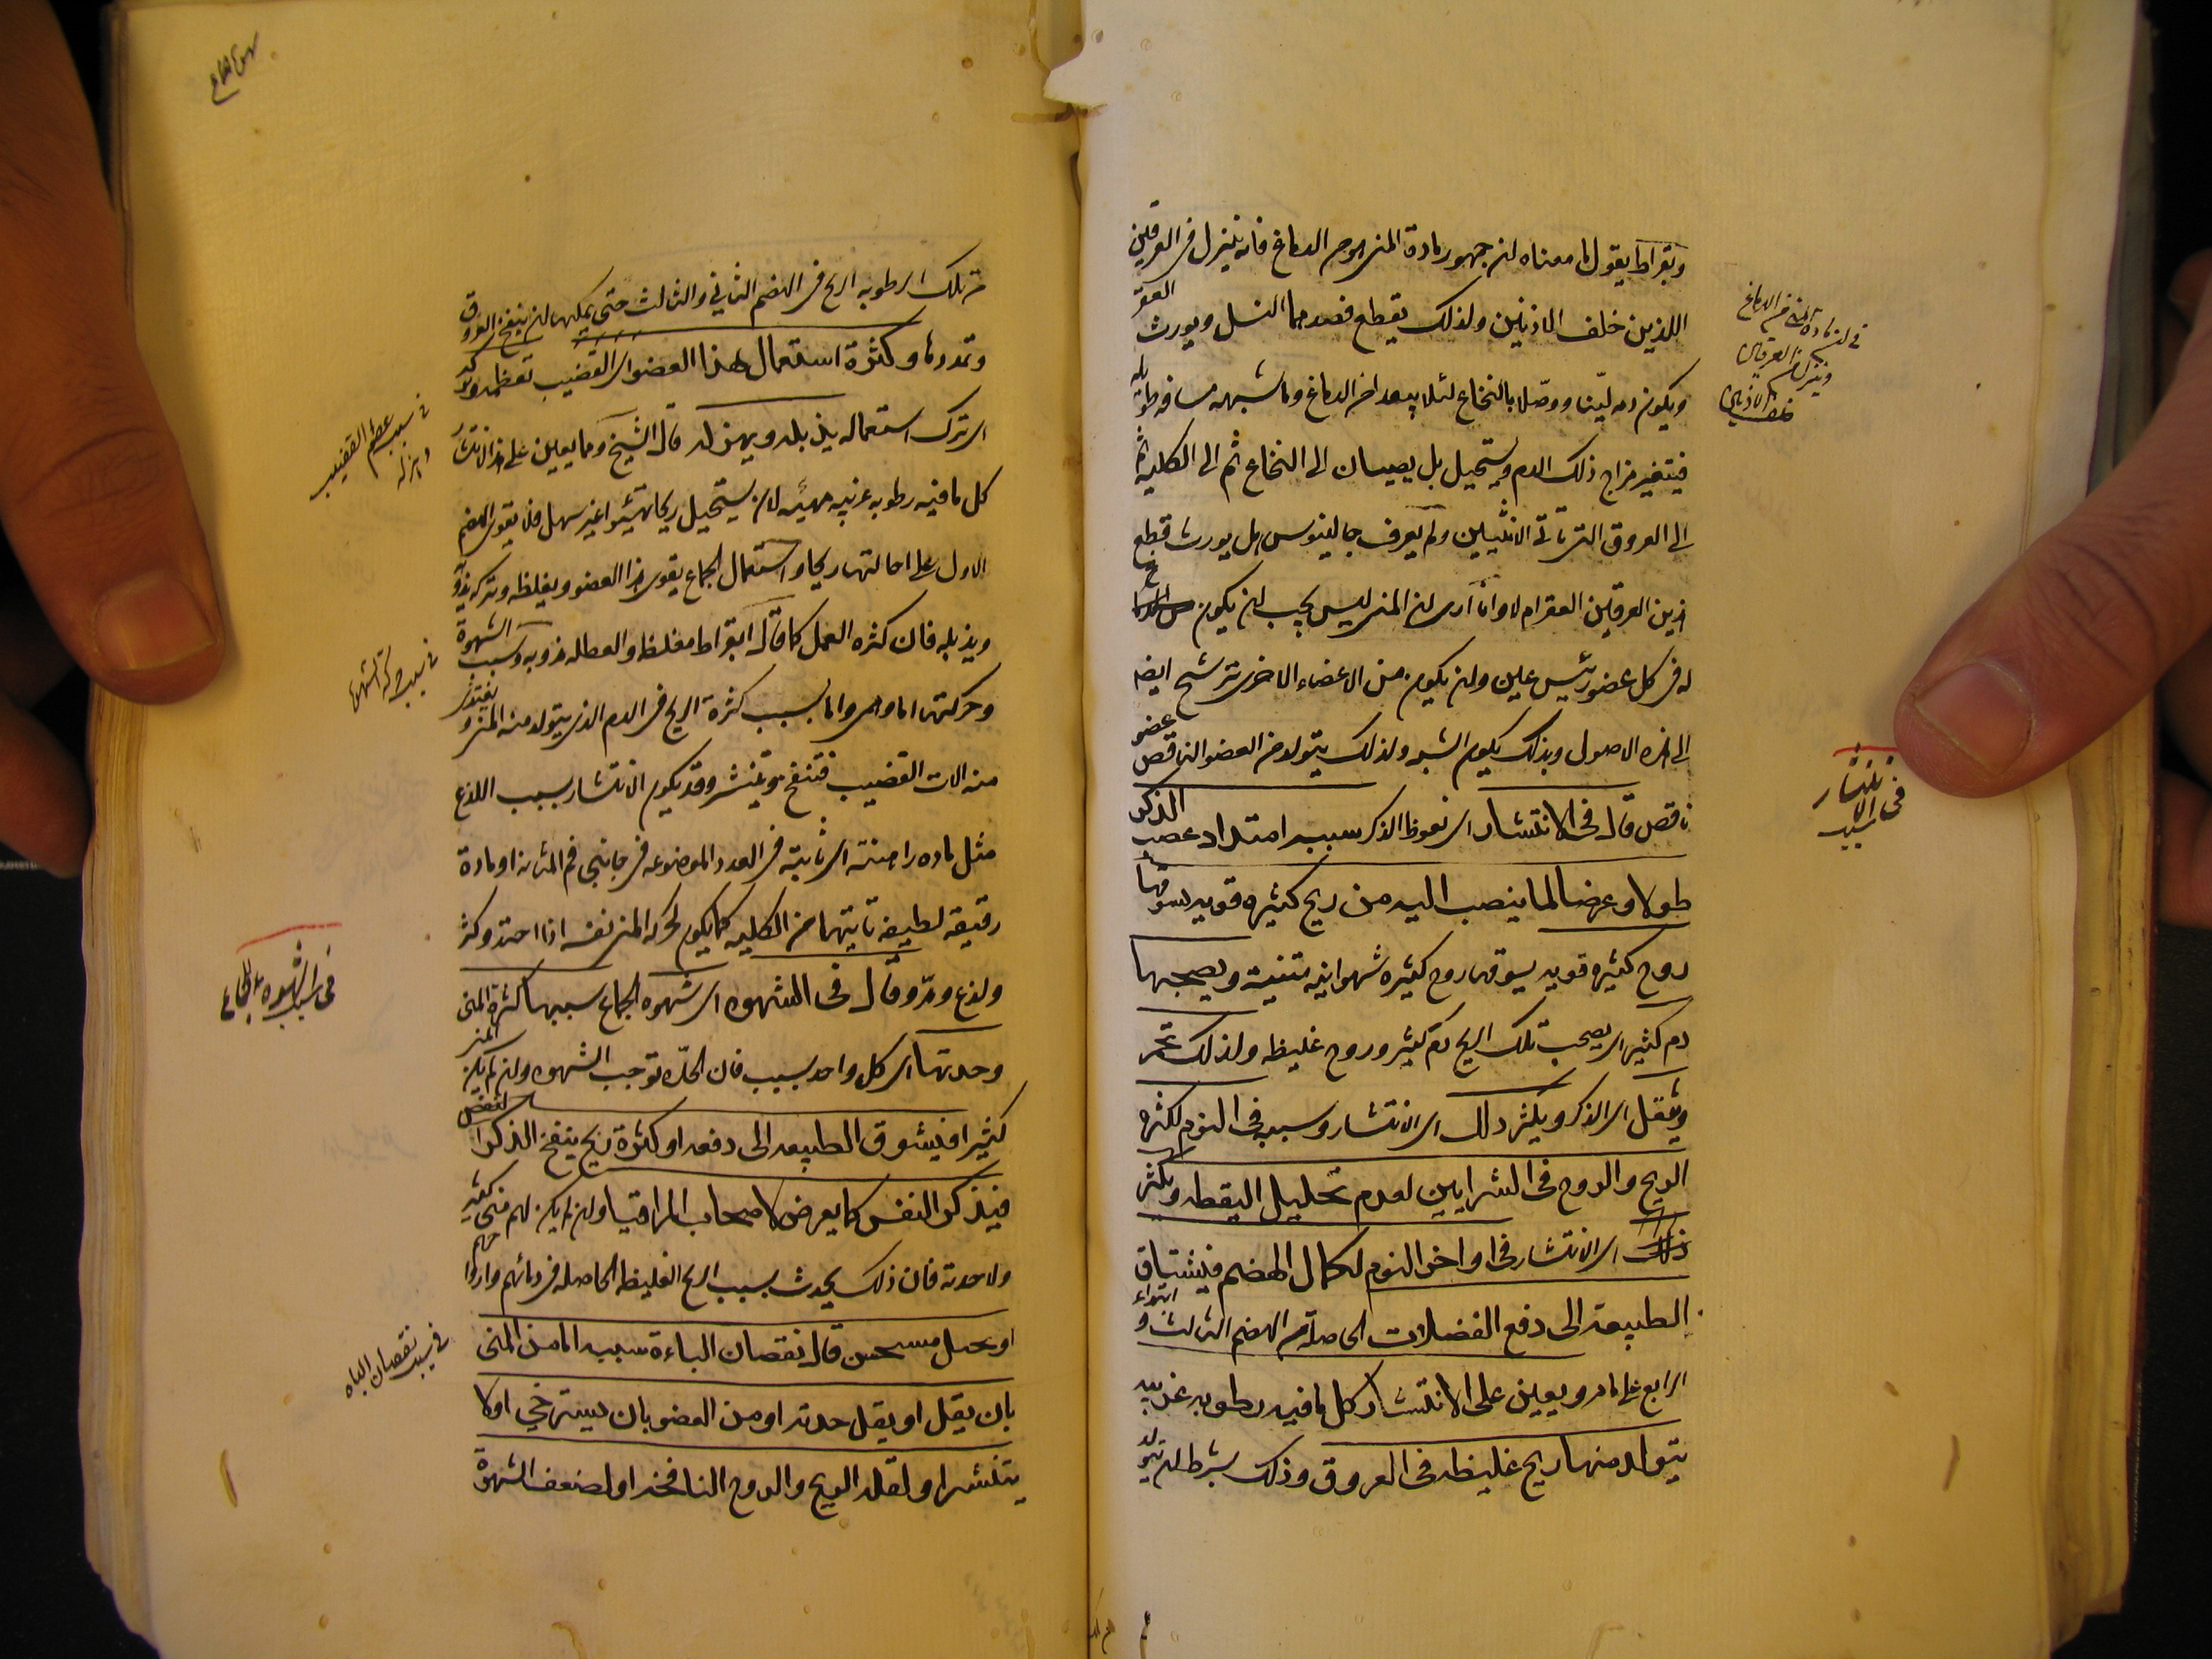 وبقراط يقول ما معناه ان جمهور مادة المنى هو من الدماغ فانه ينزل فى العرقين
اللذين خلف الاذنين ولذلك يقطع فصدهما النسل ويورث العقر
ويكون دمه لبنيا ووصلا بالنخاع لئلا يبعد من الدماغ وما يشبهه مسافة طويلة
فيتغير مزاج ذلك الدم ويستحيل بل يصبان الى النخاع ثم الى الكلية ثم
الى العروق التى تأتى الانثيين ولم يعرف جالينوس هل يورث قطع
هذين العرقين العقر ام لا وانا ارى ان المنى ليس يجب ان يكون من الدماغ
له فى كل عضو رئيس عين وان يكون من الاعضاء الاخرى ترشح ايضا
الى هذه الاصول وبذلك يكون الشبه ولذلك يتولد من العضو الناقص عضو
ناقص قال فى الانتشار اى نعوظ الذكر سببه امتداد عصب الذكر
طولا وعرضا لما ينصب اليه من ريح كثيره قويه يسوقها
روح كثيره قويه يسوقها روح كثيره شهوانيه متينة ويصحبها
دم كثير اى يصحب تلك الريح دم كثير وروح غليظه ولذلك تحمر
ويثقل اى الذكر ويكثر ذلك اى الانتشار وسببه فى النوم لكثرة
الريح والروح فى الشرايين لعدم تحليل اليقظه ويكثر
ذلك اى الانتشار فى اواخر النوم لكمال الهضم فيشتاق
الطبيعة الى دفع الفضلات الحاصلة من الهضم الثالث و ابتداء
الرابع على ما مر ويعين على الانتشار كل ما فيه رطوبه غريبه
يتولد منها ريح غليظه فى العروق وذلك بشرط ان يتولد
فى ان مادة المنى من الدماغ
وينزل فى العرقين
خلف الاذنين
فى سبب
الانتشار
من تلك الرطوبه الريح فى الهضم الثانى والثالث حتى يمكنها ان ينفخ العروق
وتمددها وكثرة استعمال هذا العضو اى القضيب تعظمه وتركه
اى ترك استعماله يذبله ويهزله قال الشيخ ومما يعين على هذا الانتشار
كل ما فيه رطوبه غريبه مهيئه لان يستحيل ريحا تهيئوا غير سهل فلا يقوى الهضم
الاول على احالتها ريحا واستعمال الجماع يقوى هذا العضو ويغلظه وتركه يذويه
ويذبله فان كثره العمل كما قال ابقراط مغلظ والعطاله مذوبه وسبب الشهوة
وحركتها اما وهمى واما بسبب كثرة الريح فى الدم الذى يتولد منه المنى ويغتذى
منه الات القضيب فتنفخ وتنتشر وقد يكون الانتشار بسبب اللذع
مثل ماده راهنة اى ثابتة فى الغدد الموضوعه فى جانبى فم المثانه او مادة
رقيقة لطيفه تأتيها من الكليه كما يكون لحركة المنى نفسه اذا احتد وكثر
ولذع ومدد وقال فى الشهوه اى شهوه الجماع سببها كثرة المنى
وحدتها اى كل واحد سبب فان الحده توجب الشهوه وان لم يكن المنى
كثيرا فيشوق الطبيعه الى دفعه او كثرة ريح ينفخ الذكر
فيذكر النفس كما يعرض لاصحاب المراقيا وان لم يكن لهم منى كثير
ولا حدته فان ذلك يحدث بسبب الريح الغليظه الحاصله فى دمائهم
او تخيل مستحسن قال نقصان الباءة سببه اما من المنى
بان يقل او يقل حدته او من العضو بان يسترخى او لا
ينتشر او لقلة الريح والروح النافخه او لضعف الشهوة
فى سبب عظم القضيب
وهزاله
فى سبب حركة الشهوة
فى سبب الشهوه للجماع
فى سبب نقصان الباه